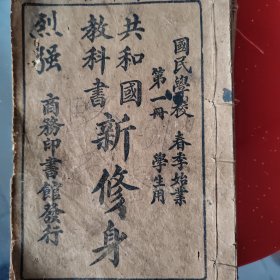 國民學校 春季始業
第一冊 學生用
共和國
教科書
新修身
商務印書館發行
烈强